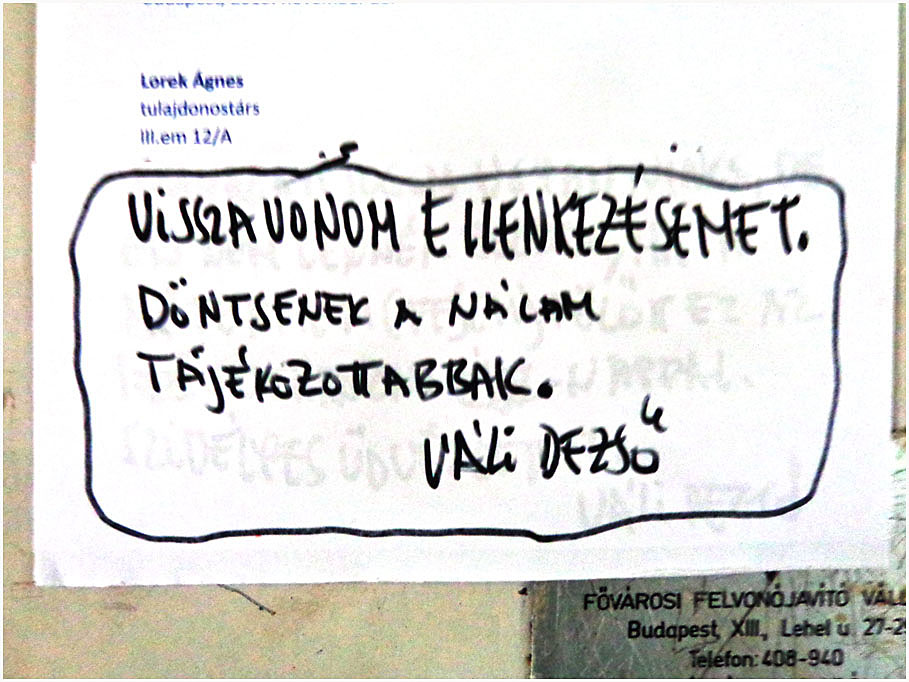 Lorek Ágnes
tulajdonostárs
III.em 12/A
VISSZAVONOM ELLENKEZÉSEMET.
DÖNTSENEK A NÁLAM
TÁJÉKOZOTTABBAK.
VÁLI DEZSŐ
FŐVÁROSI FELVONÓJAVÍTÓ
Budapest, XIII., Lehel u. 27-29
Telefon: 408-940